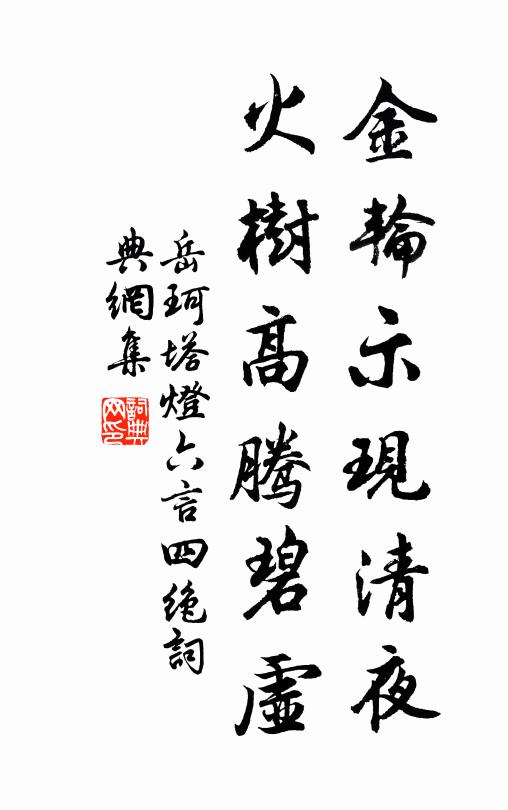 金輪示現清夜
火樹高騰碧虛
岳珂塔燈六言四絶詞
典網集
詞典网印